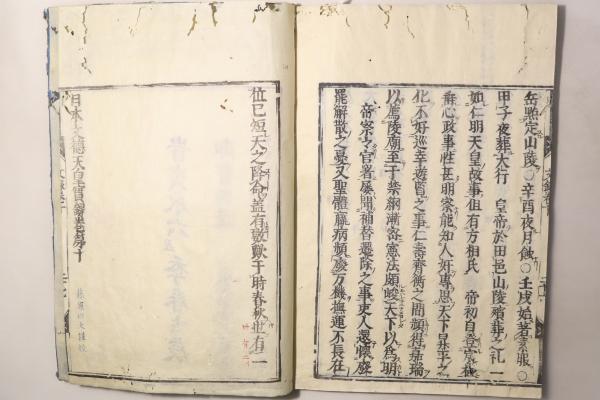 岳點定山陵○辛酉夜月蝕○壬戌始著素服○
甲子夜葬大行 皇帝於田邑山陵殯葬之礼一
如仁明天皇故事但有方相氏 帝初自登宸極
垂心政事性甚明察能知人奸專思天下昇平之
化不好巡幸遊覽之事仁壽齊衡之間頻得嘉瑞
以薦陵廟至于禁網漸密憲法頗峻天下以為明
帝察之官署屡聞補替遷除之事吏人還懐
罷解散之憂又聖體羸病頻廢万機撫運不長在
位已短天之降命蓋有數歟于時春秋世有二
卅有二
日本文徳天皇實録卷第十